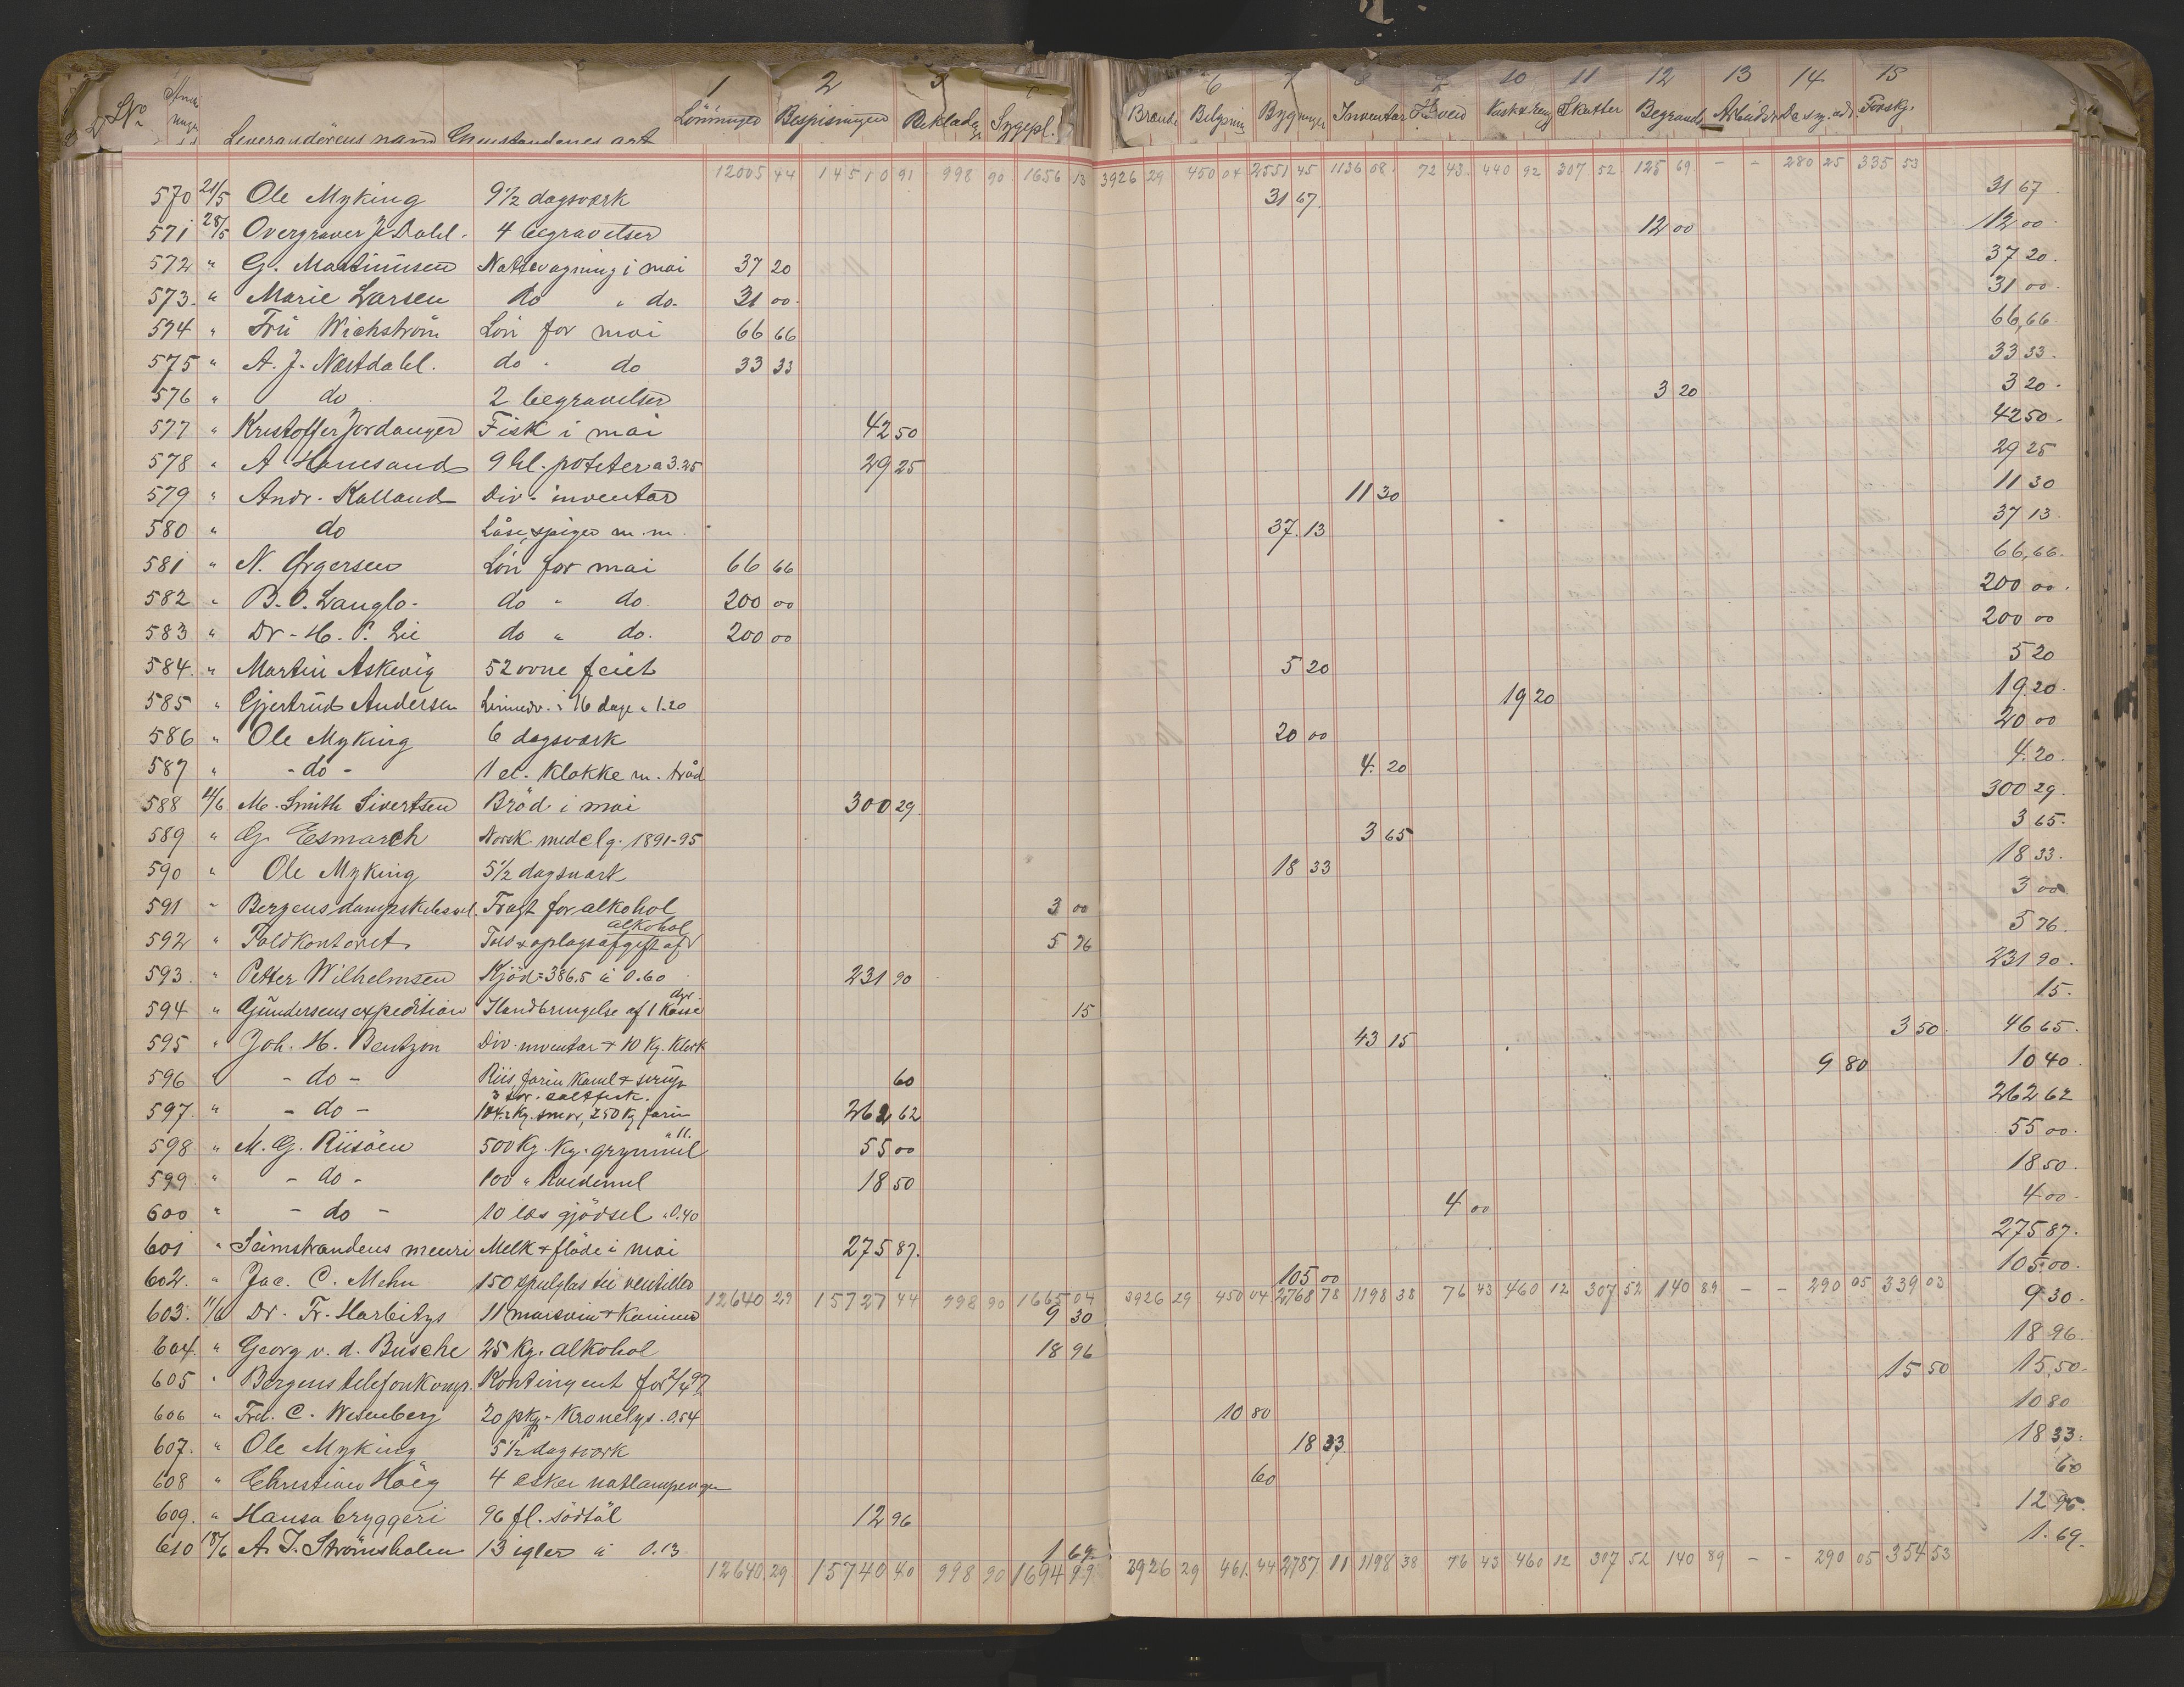 1 2 3 6 7 8 9 10 11 12 13 14 15
No Leverandörens navn Gjenstandenes art Lönninger Bespisningen Beklædn. Sygepl. Brænde Belysning Bygninger Inventar Skatter Begravels. Forskj.
12005 44 14510 91 998 90 1656 13 3926 29 450 04 2551 45 1136 08 72 43 440 92 307 52 125 69 - - 280 25 335 53
570 21/5 Ole Myking 9 1/2 dagsværk 31 67 31 67
571 28/5 Overgraver J. Dahl. 4 begravelser 12 00 12 00
572 " G. Martinüsen Nattevagning i mai 37 20 37 20
573. " Marie Larsen do " do. 31 00 31 00
574 " Frü Wichström Lön for mai 66 66 66,66
575 " A. J. Næstdahl. do - do 33 33 33 33
576 " do 2 begravelser 3 20 3 20
577 " Kristoffer Jordanger Fisk i mai 42 50 42 50
578 " A Hamsand 9 hl. poteter a 3.25 29 25 29 25
579 " Andr. Kalland Div. inventar 11 30 11 30
580 " do Låse, spiger m. m. 37.13 37 13
581 " N. Ørgersen Lön for mai 66 66 66,66
582 " B. O. Langlo. do - do 200 00 200 00
583 " Dr. H. P. Lie do " do. 200 00 200 00
584. " Martin Askevig 52 ovne feiet 5 20 5 20
585 " Gjertrud Andersen 16 dage a 1.20 19 20 19 20
586 " Ole Myking 6 dagsværk 20 00 20 00
587 " - do - 1 el. klokke m. tråd 4. 20 4. 20
588 4/6 M. Smith Sivertsen Bröd i mai 300 29 300 29
589 " G. Esmarch Norsk medelg. 1891-95 3 65 3 65
590 " Ole Myking 5 1/2 dagsværk 18 33 18 33
591 " Bergens dampskibssel. Fragt for alkohol 3 00 3 00
592 " Toldkontoret Told & oplagsafgift af alkohol 5 76 5 76
593. " Petter Wilhelmsen Kjöd = 386,5 à 0.60 231 90 231 90
594 " Gündersens expedition Ilandbringelse af 1 kasse 15 15
595 " Joh. H. Bentzon Div. inventar + 10 Kg. 43 15 3 50 46 65
596 " - do - Riis, farin, kanel + sirup 60 9 80 10 40
597. " - do - 3 tdr. saltfisk. 104.2 Kg. smör, 250 Kg farin 262 62 262 62
598 " M. G. Riisöen 500 Kg. Kg. grynmel " 11. 55 00 55 00
599 " - do - 100 " hvedemel 18 50 18 50
600 " - do - 10 læs gjödsel à 0.40 4 00 4.00
601 " Seimstrandens meieri Melk + flöde i mai 275 87. 275 87.
602. " Jac. C. Mehn 150 speilglas til ventiller 105 00 105.00
12640 29 15727 44 998 90 1665 04 3926 29 450 04 2768 78 1198 38 76 43 460 12 307 52 140 89 - - 290 05 339 03
603. 11/6 Dr. Fr. Harbitys 11 marsvin + kaniner 9 30 9 30
604. " Georg v. d. Busche 25 Kg. alkohol 18 96 18 96
605 " Bergens telefonkomp. Kontingent for 2/4 97 15 50 15,50
606 " Frd. C. Wesenberg 20 pkg. Kronelys. 0.54 10 80 10 80
607. " Ole Myking 5 1/2 dagsværk 18 33 18 33
608 " Christian Höeg 4 esker natlampe 60 60
609. " Hansa bryggeri 96 fl. södtöl 12 96 12 96
610 18/6 A. J. Strömsholm 13 igler à 0.13 1 69 1. 69
12640 29 15740 40 998 90 1694 99 3926 29 461 44 2787 11 1198 38 76 43 460 12 307 52 140 89 - - 290 05 354 53